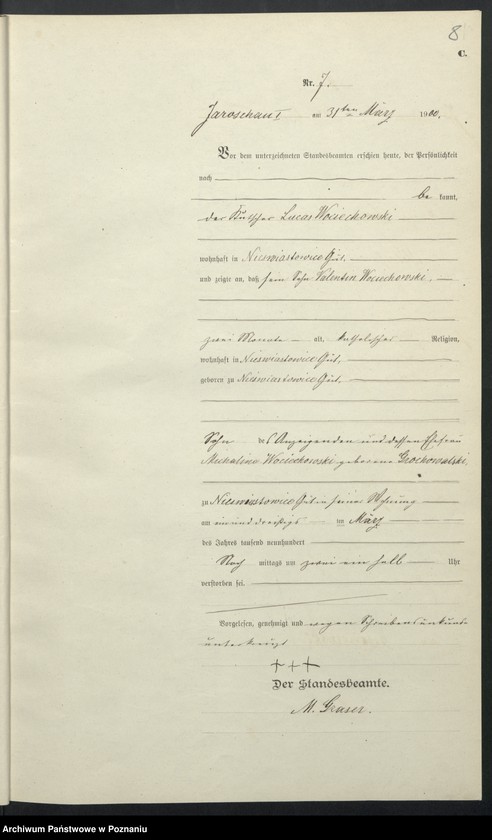 8
C.
Nr. 7.
Jaroschau I am 31ten März 1900.
Vor dem unterzeichneten Standesbeamten erschien heute, der Persönlichkeit
nach
be kannt,
der Kutscher Lucas Wociechowski
wohnhaft in Nieswiastowice Gut,
und zeigte an, daß sein Sohn Valentin Wociechowski,
zwei Monate alt, katholischer Religion,
wohnhaft in Nieswiastowice Gut,
geboren zu Nieswiastowice Gut,
Sohn des Anzeigenden und dessen Ehefrau
Michalina Wociechowski geborene Grochowalski,
zu Nieswiastowice Gut in seiner Wohnung
am einunddreißigs im März
des Jahres tausend neunhundert
Nach mittags um zwei ein halb Uhr
verstorben sei.
Vorgelesen, genehmigt und wegen Schreibensunkunde
unterkreuzt
+ + +
Der Standesbeamte.
M.
Archiwum Państwowe w Poznaniu